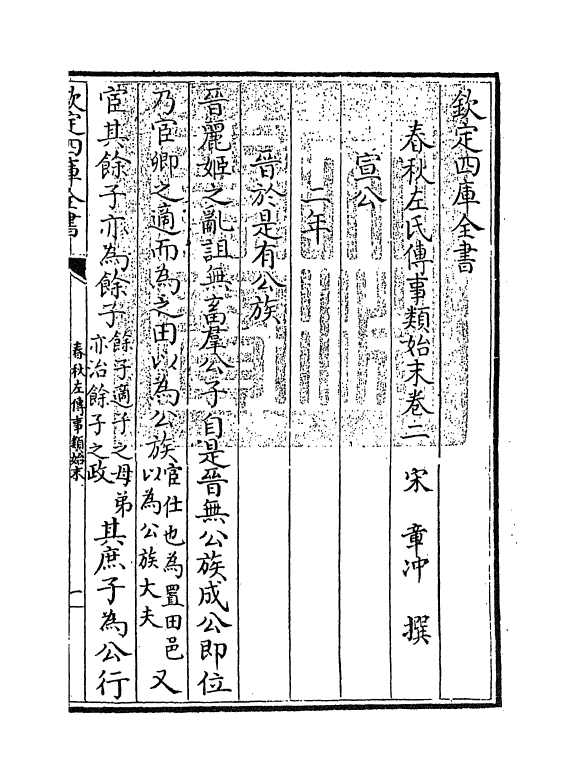 欽定四庫全書
春秋左氏傳事類始末卷二 宋 章冲 撰
宣公
二年
晉於是有公族
晉麗姬之亂詛無畜羣公子自是晉無公族成公即位
乃宦卿之適而為之田以為公族宦仕也為置田邑以為公族大夫又
宦其餘子亦為餘子餘子適子之母弟亦治餘子之政其庶子為公行
欽定四庫全書 春秋左傳事類始末 一